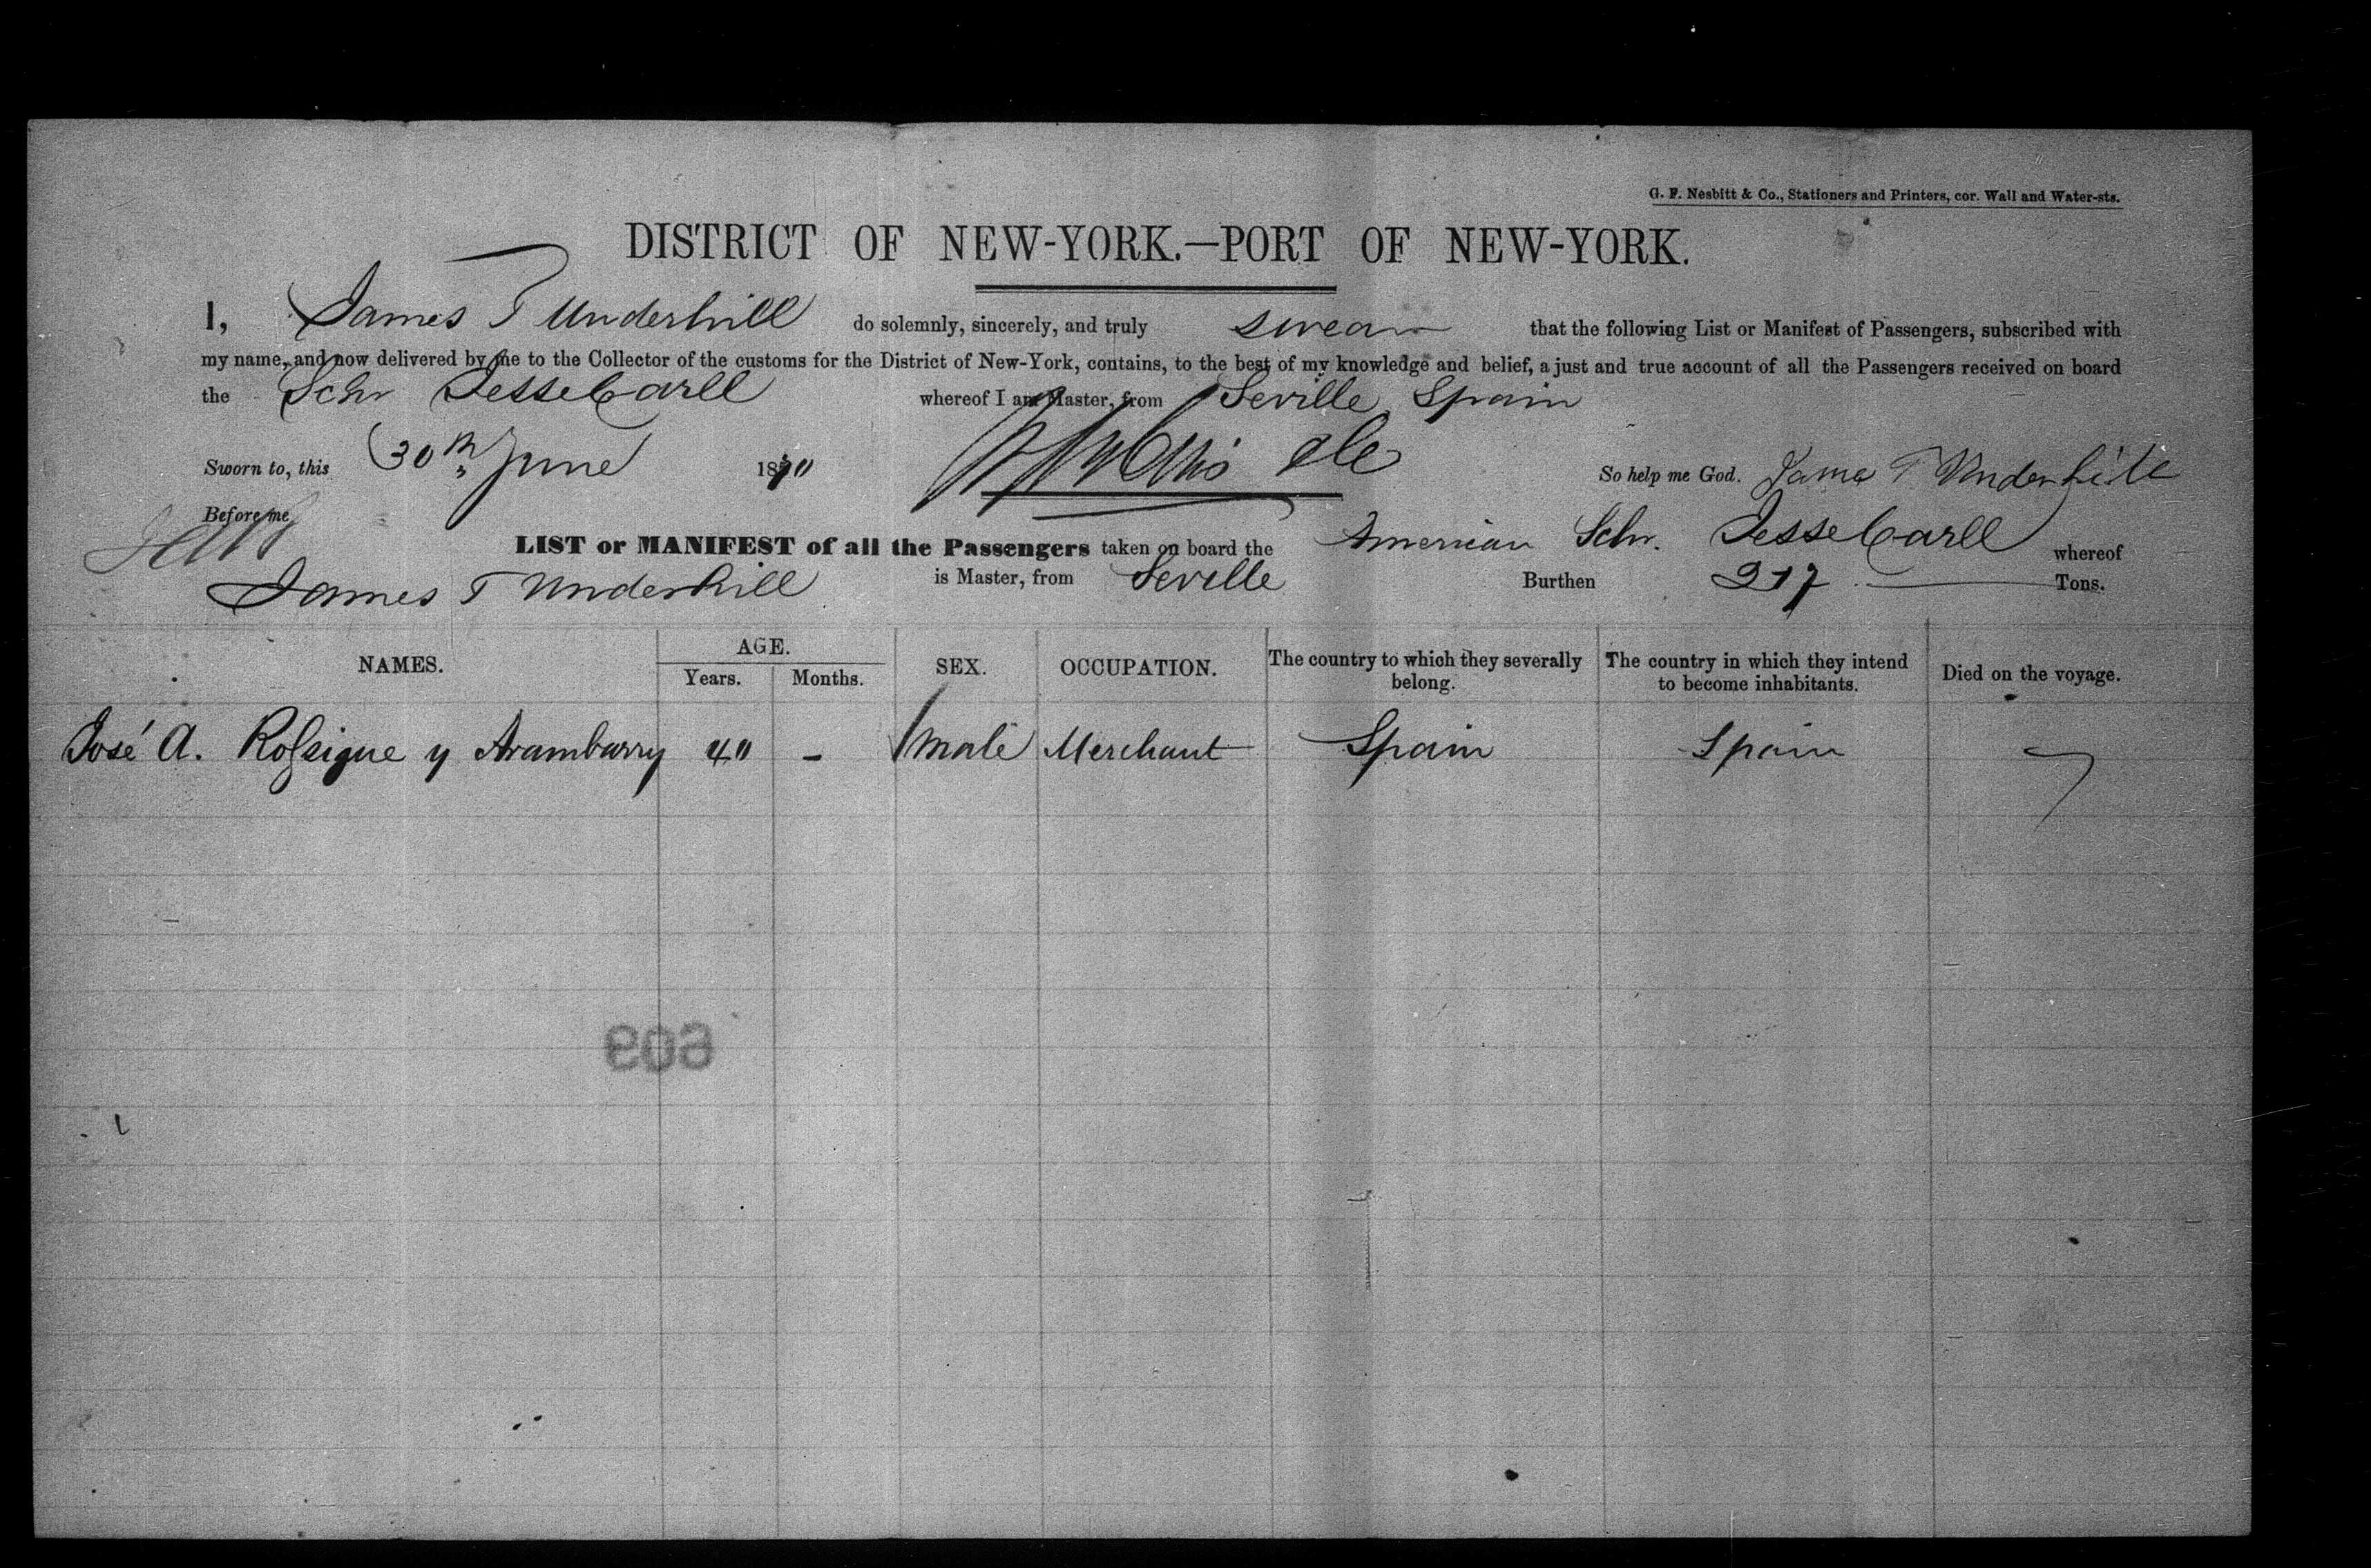 G. F. Nesbitt & Co., Stationers and Printers, cor. Wall and Water-sts.
DISTRICT OF NEW-YORK.—PORT OF NEW-YORK.
I, James T Underhill do solemnly, sincerely, and truly swear that the following List or Manifest of Passengers, subscribed with
my name, and now delivered by me to the Collector of the customs for the District of New-York, contains, to the best of my knowledge and belief, a just and true account of all the Passengers received on board
the Schr Jesse Carll whereof I am Master, from Seville Spain
Sworn to, this 30th June 1870 So help me God. James T Underhill
Before me
LIST or MANIFEST of all the Passengers taken on board the American Schr. Jesse Carll whereof
James T Underhill is Master, from Seville Burthen 317 Tons.
NAMES. AGE. SEX. OCCUPATION. The country to which they severally belong. The country in which they intend to become inhabitants. Died on the voyage.
Years. Months.
José A. Rossique y Aramburry 40 - Male Merchant Spain Spain
609